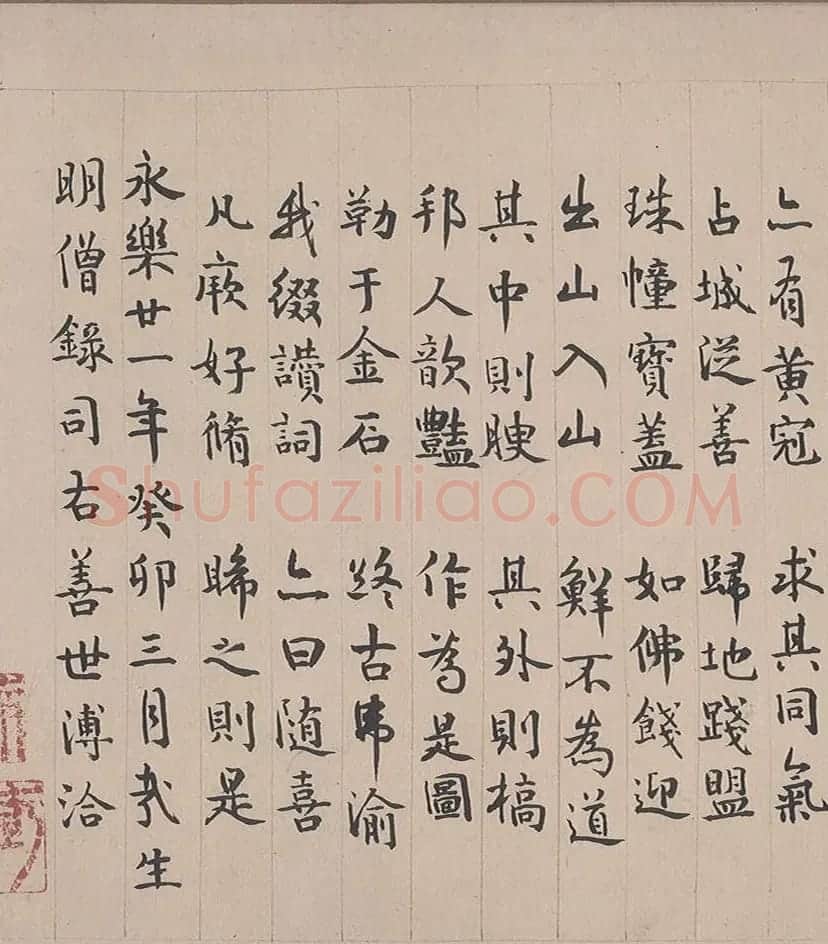 亦有黃冠 求其同氣
占城從善 歸地踐盟
珠幢寶蓋 如佛餞迎
出山入山 鮮不為道
其中則腴 其外則槁
邦人歆豔 作為是圖
勒于金石 終古弗渝
我綴讚詞 亦曰隨喜
凡厥好脩 睎之則是
永樂廿一年癸卯三月哉生
明僧錄司右善世溥洽
Shufaziliao.COM